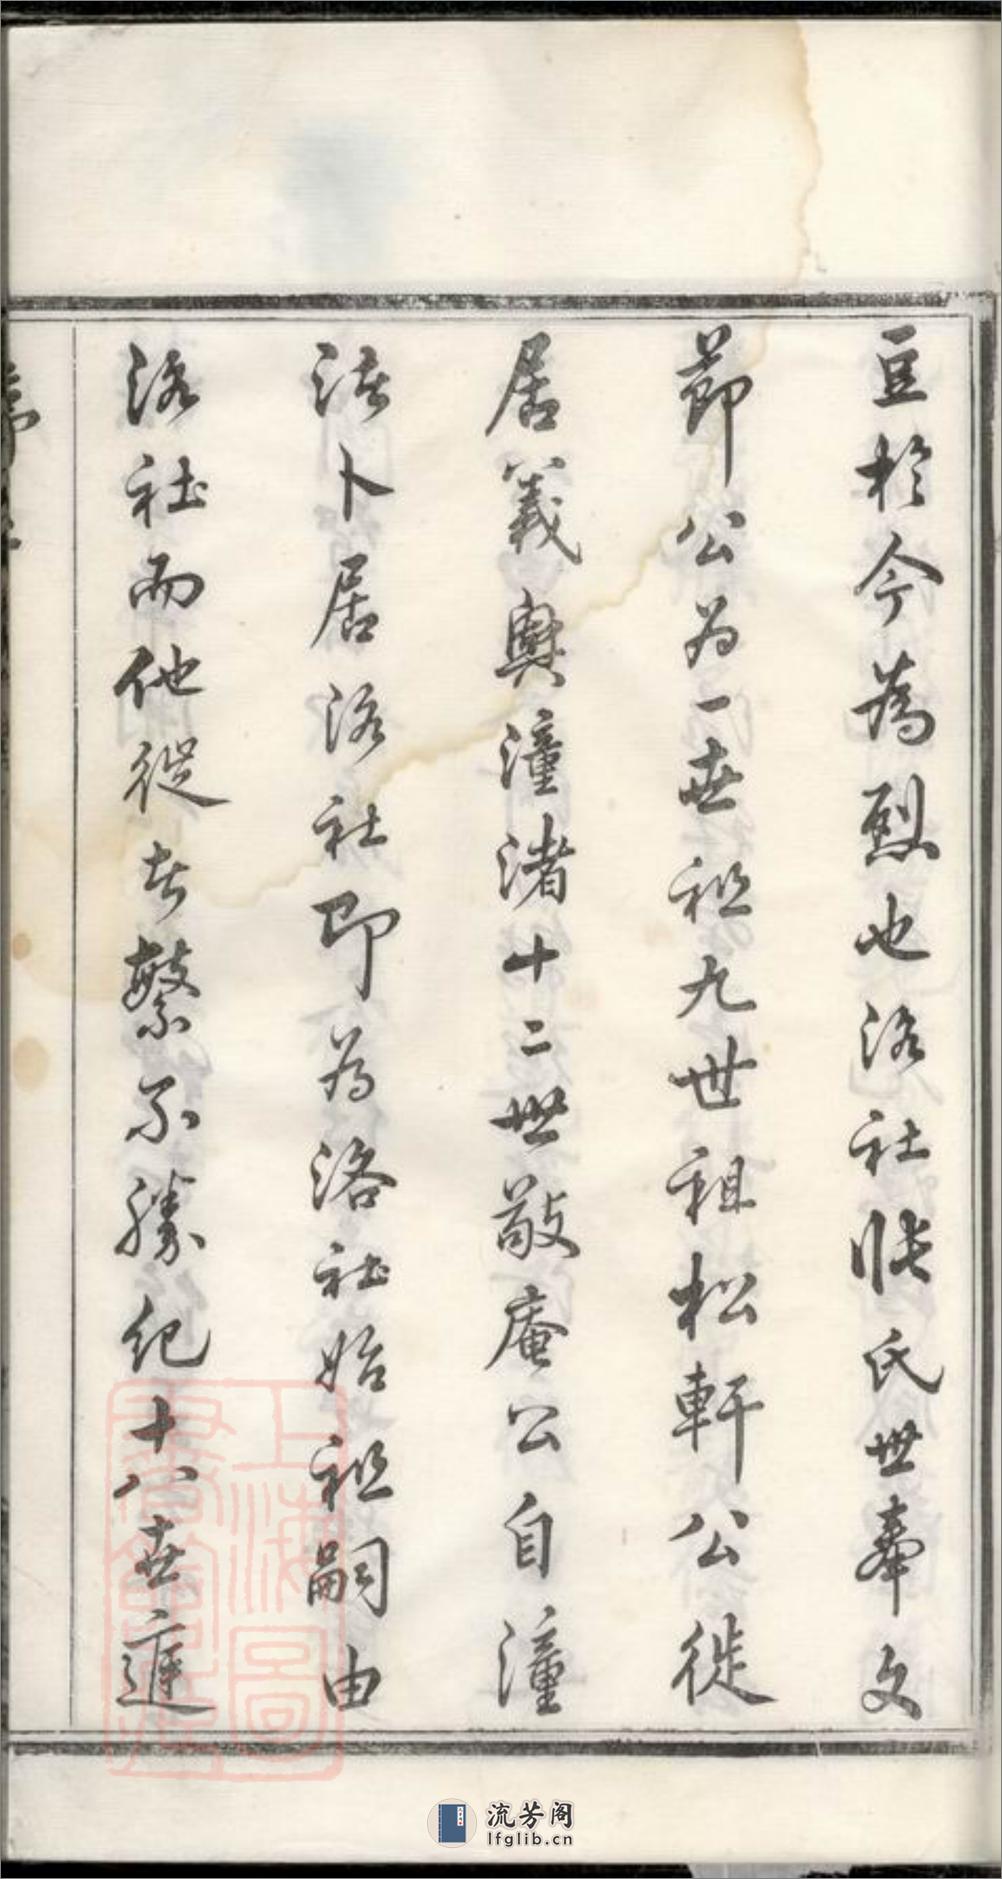 豆於今為烈也洛社張氏世奉文
節公为一世祖九世祖松軒公徙
居義興潼渚十二世敬庵公自潼
渚卜居洛社即为洛社始祖嗣由
洛社而他徙者繁不勝紀十八世遷
上海圖書館藏
流芳阁
lfglib.cn